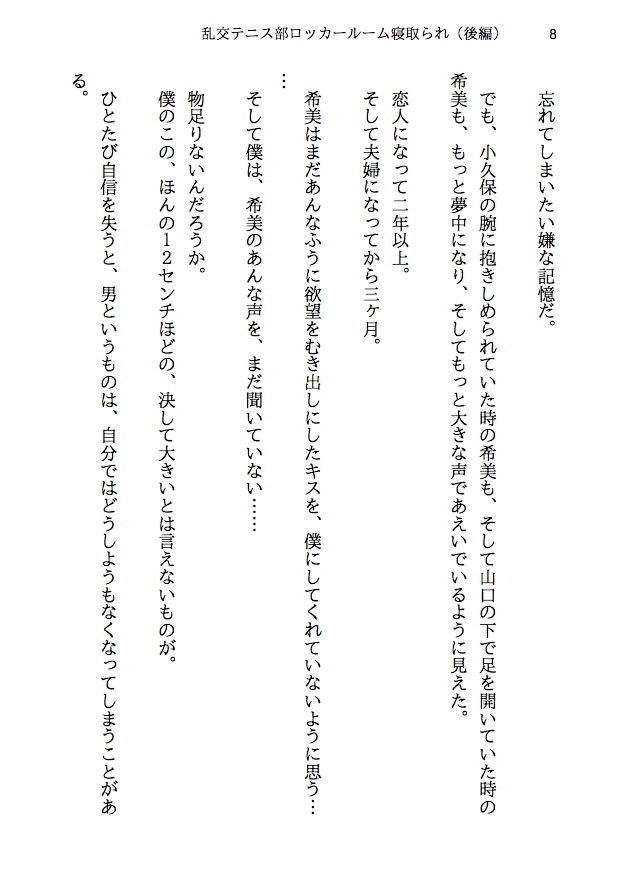 乱交テニス部ロッカールーム寝取られ（後編） 8
忘れてしまいたい嫌な記憶だ。
でも、小久保の腕に抱きしめられていた時の希美も、そして山口の下で足を開いていた時の
希美も、もっと夢中になり、そしてもっと大きな声であえいでいるように見えた。
恋人になって二年以上。
そして夫婦になってから三ヶ月。
希美はまだあんなふうに欲望をむき出しにしたキスを、僕にしてくれていないように思う…
…
そして僕は、希美のあんな声を、まだ聞いていない……
物足りないんだろうか。
僕のこの、ほんの１２センチほどの、決して大きいとは言えないものが。
ひとたび自信を失うと、男というものは、自分ではどうしようもなくなってしまうことがあ
る。